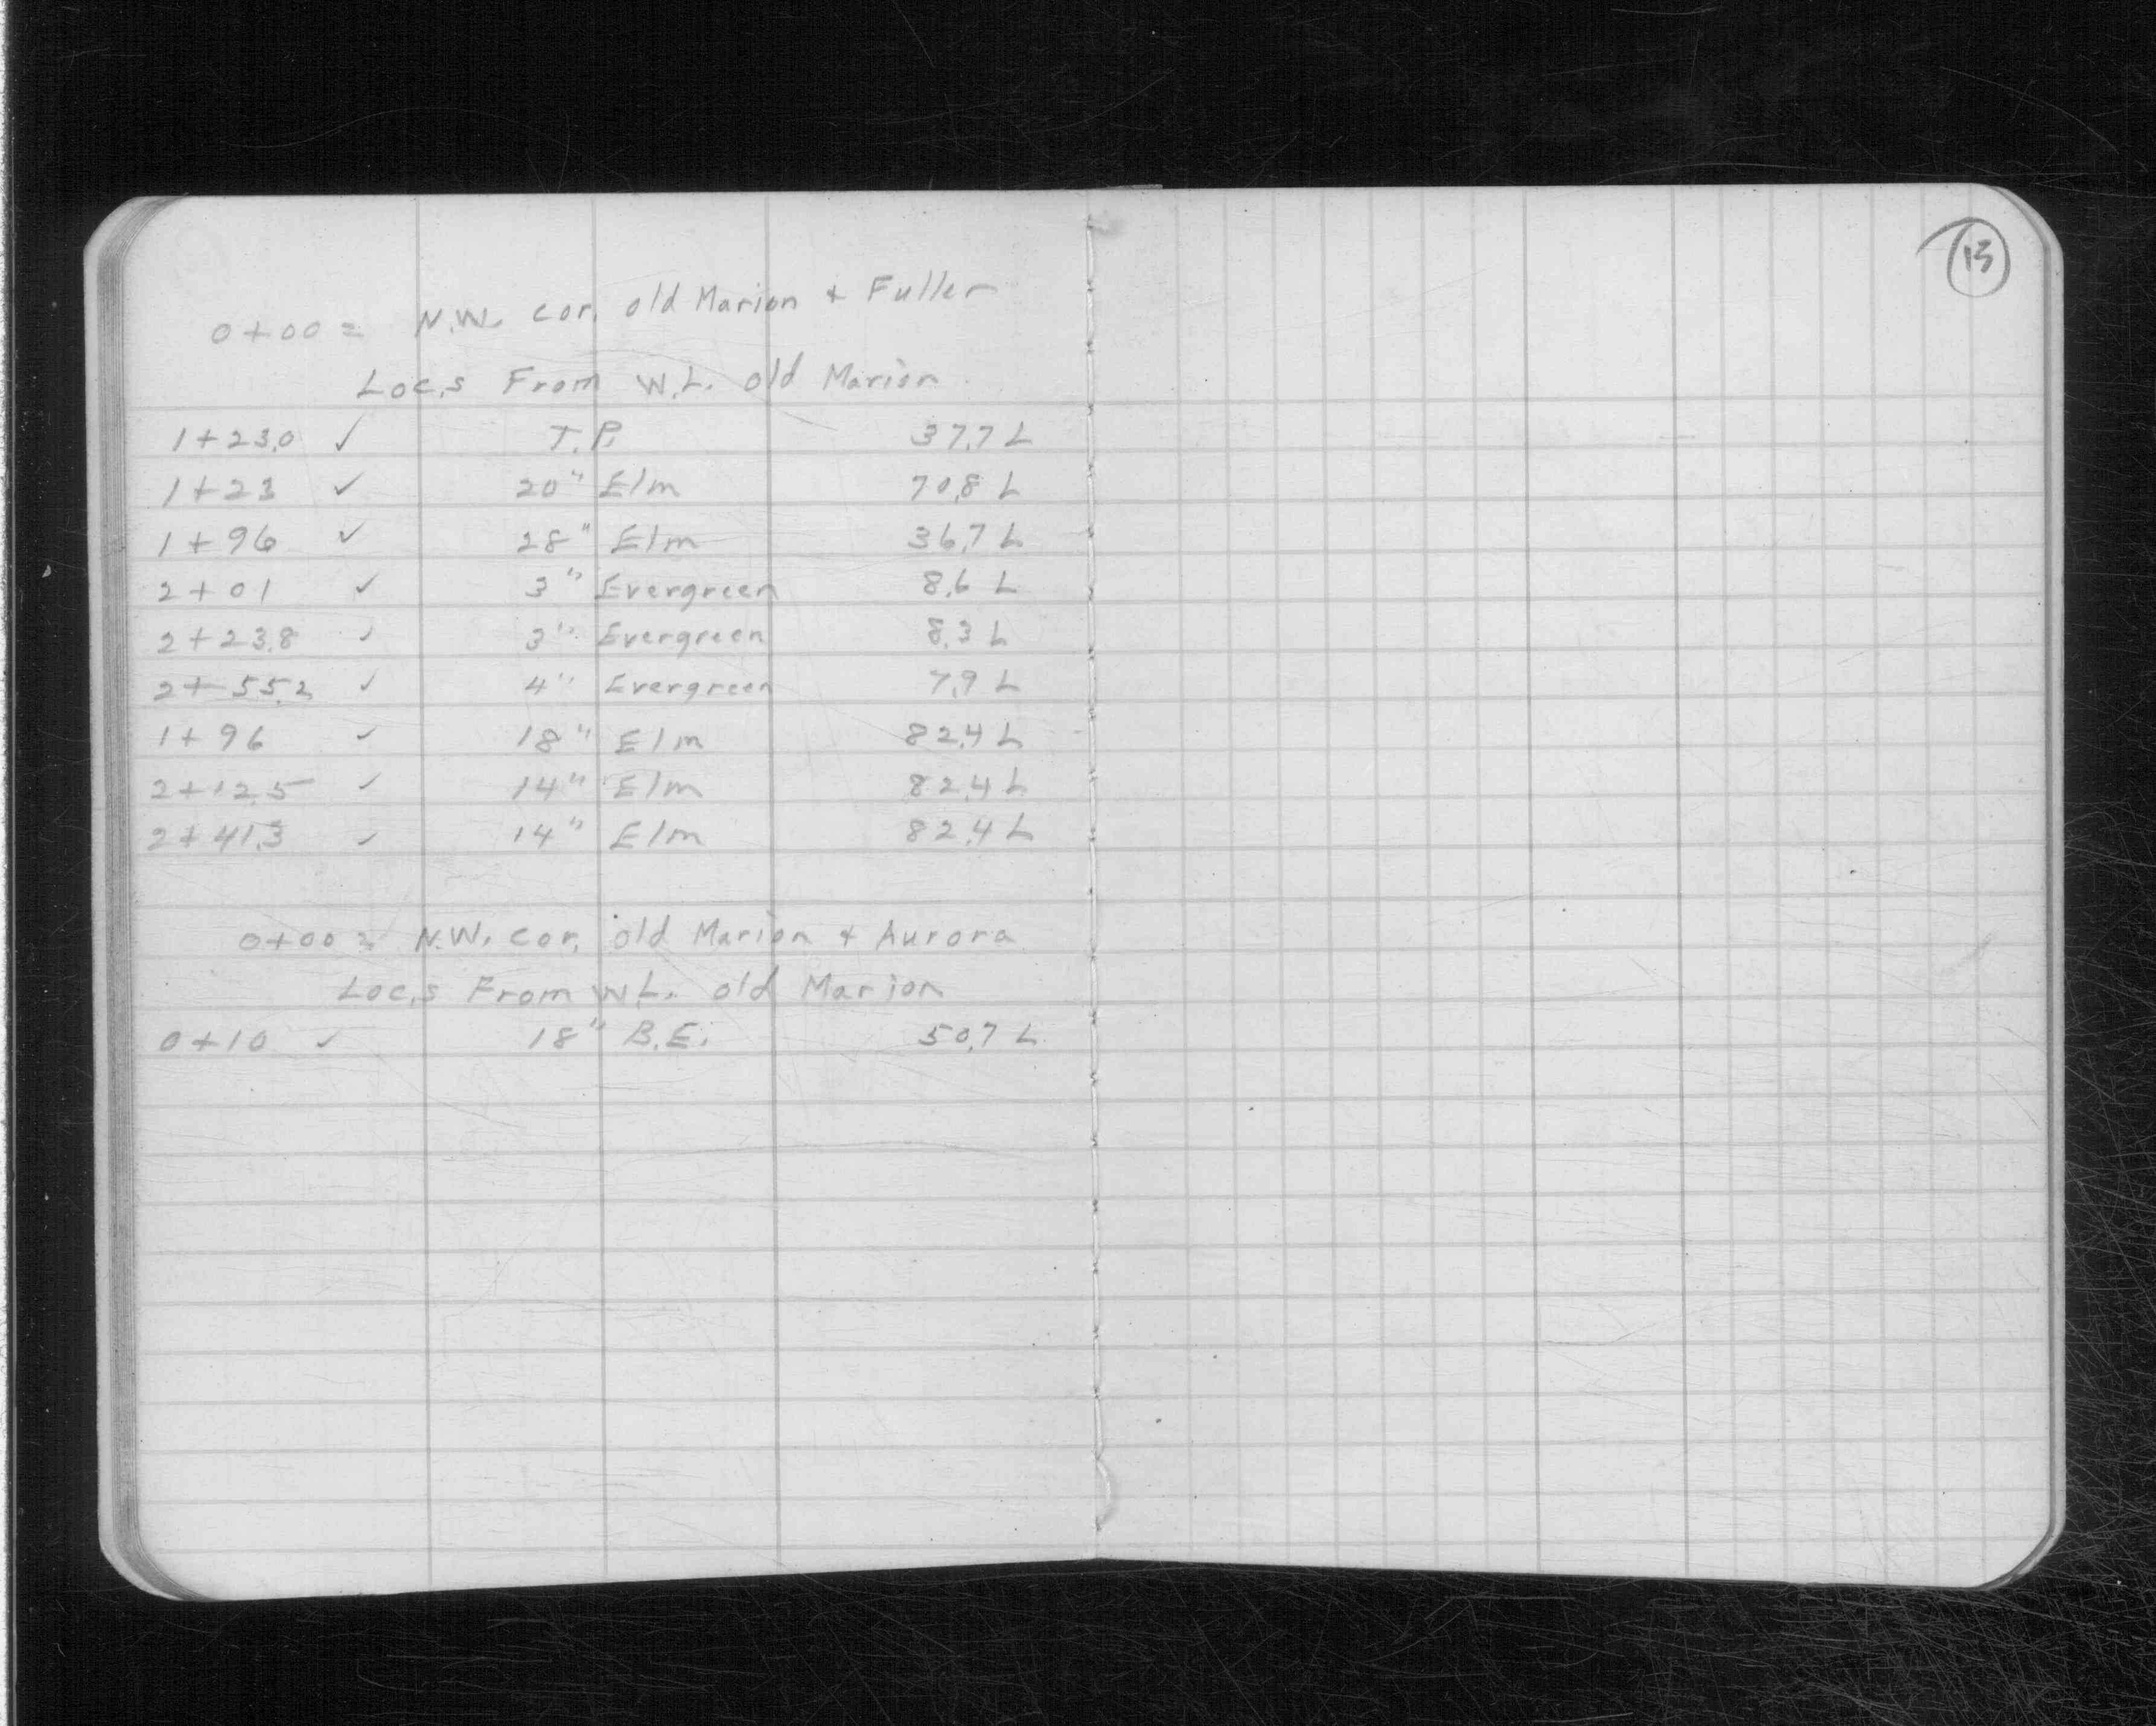 13
0+00 = N.W. cor. old Marion + Fuller
Loc.s From W.L. old Marion
1+23.0 ✓ T.P. 37.7 L
1+23 ✓ 20" Elm 70.8 L
1+96 ✓ 28" Elm 36.7 L
2+01 ✓ 3" Evergreen 8.6 L
2+23.8 ✓ 3" Evergreen 8.3 L
2+55.2 ✓ 4" Evergreen 7.9 L
1+96 ✓ 18" Elm 82.4 L
2+12.5 ✓ 14" Elm 82.4 L
2+41.3 ✓ 14" Elm 82.4 L
0+00 = N.W. cor. old Marion + Aurora
Loc.s From W.L. old Marion
0+10 ✓ 18" B.E. 50.7 L